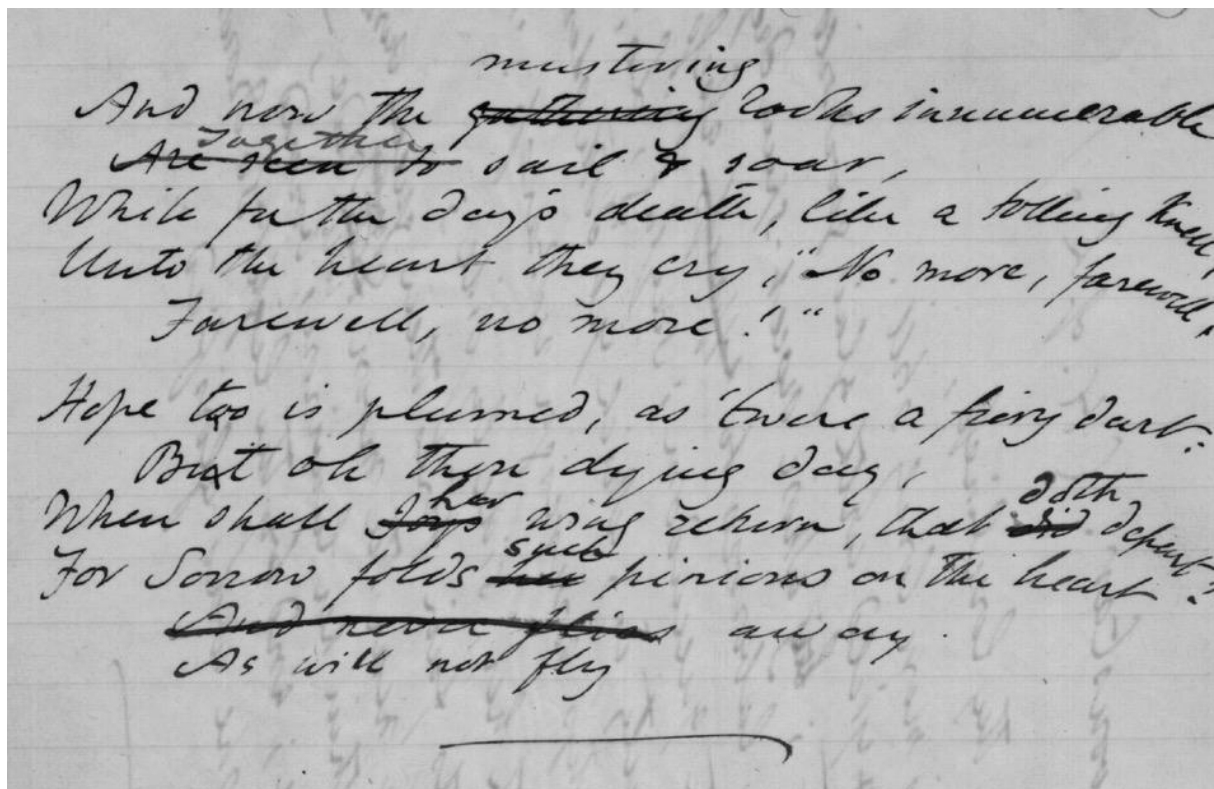 mustering
And now the gathering rooks innumerable
Together
Are seen to sail & soar,
While for the day's death, like a tolling knell,
Unto the heart they cry, "No more, farewell,
Farewell, no more!"
Hope too is plumed, as 'twere a fiery dart:
But oh thou dying day,
her doth
When shall Joy's wing return, that did depart?
such
For Sorrow folds her pinions on the heart
And never flies away.
As will not fly